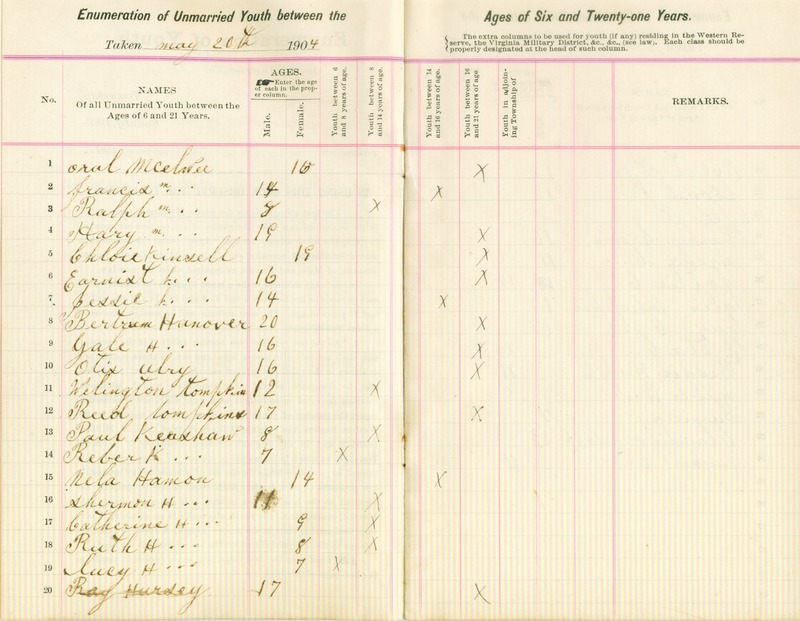 Enumeration of Unmarried Youth between the Ages of Six and Twenty-one Years.
Taken may 20th 1904
The extra columns to be used for youth (if any) residing in the Western Re-
serve, the Virginia Military District, &c., &c., (see law). Each class should be
properly designated at the head of such column.
No.
NAMES
Of all Unmarried Youth between the
Ages of 6 and 21 Years.
AGES.
Enter the age
of each in the prop-
er column.
Male.
Female.
Youth between 6
and 8 years of age.
Youth between 8
and 14 years of age.
Youth between 14
and 16 years of age.
Youth between 16
and 21 years of age.
Youth in adjoin-
ing Township of
REMARKS.
1 oral McElwee 16 X
2 francis m. . . 14 X
3 Ralph m. . . 8 X
4 Hary m. . . 19 X
5 Chloie Kinsell 19 X
6 Earnist k. . . 16 X
7 Jessie k. . . 14 X
8 Bertrum Hanover 20 X
9 Gale H . . . 16 X
10 Otix Ulry 16 X
11 Welington tompkin 12 X
12 Reed tompkins 17 X
13 Paul Kershaw 8 X
14 Reber K . . . 7 X
15 Nela Hamon 14 X
16 Shermon H . . . 11 X
17 Catherine H . . . 9 X
18 Ruth H . . . 8 X
19 Lucy H . . . 7 X
20 Ray Hursey 17 X